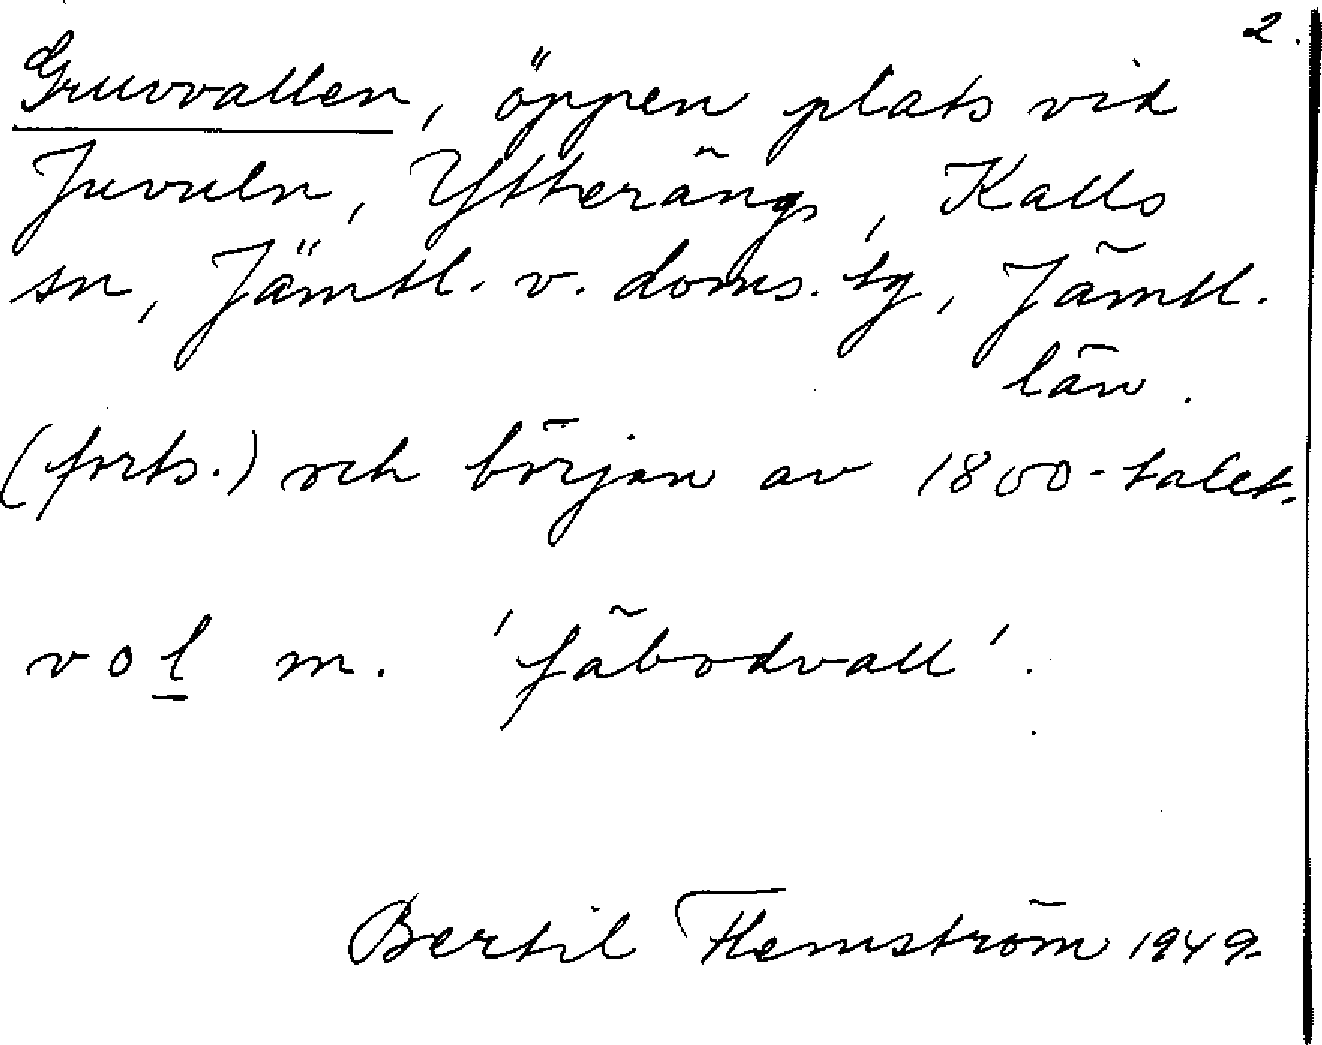 2.
Gruvvallen, öppen plats vid
Juvuln, Ytterängs, Kalls
sn, Jämtl. v. doms. tg, Jämtl.
län.
(forts.) och början av 1800-talet.
vol m. 'fäbodvall'.
Bertil Flemström 1949.